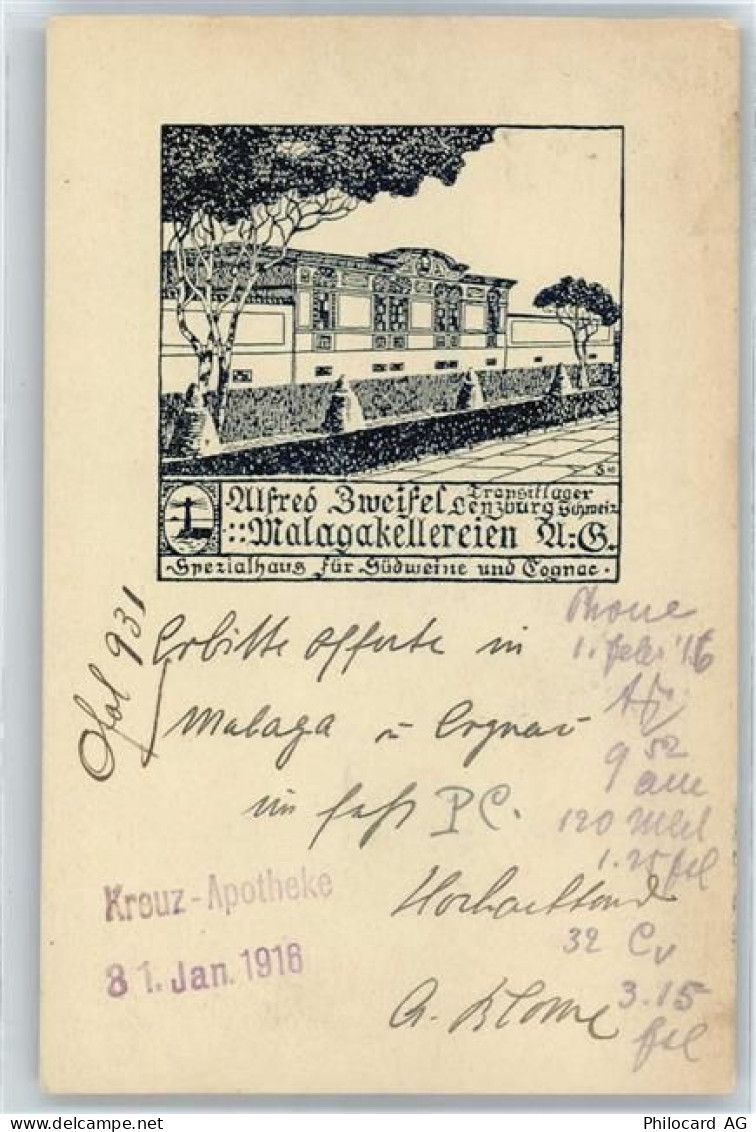 Alfred Zweifel Transitlager
Lenzburg Schweiz
::Malagakellereien A:G.
·Spezialhaus für Südweine und Cognac·
931
Erbitte Offerte in
Malaga u Cognac
im Fass PC.
Hochachtend
A. Blome
Kreuz-Apotheke
31. Jan. 1916
Phone
1. Febr '16
9 52
120
1.25
32
3.15
Philocard AG